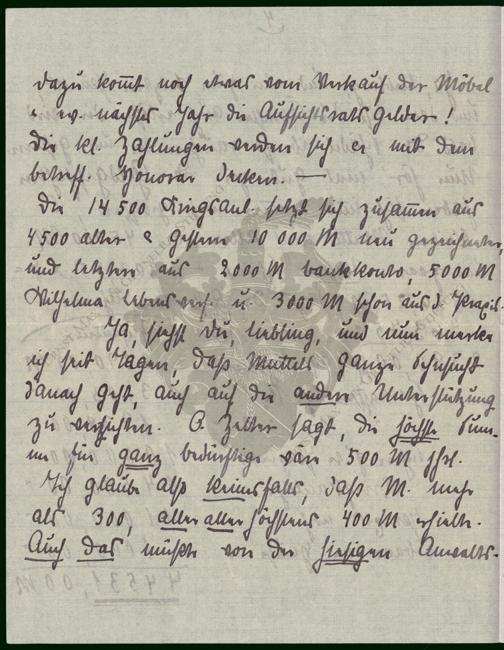 dazu kom̅t noch etwas vom Verkauf der Möbel
u. ev. nächstes Jahr die Aufsichtsrats Gelder!
Die kl. Zahlungen werden sich ca mit dem
betreff. Honorar decken. —
Die 14 500 Kriegsanl. setzt sich zusam̅en aus
4500 alter & gestern 10 000 M neu gezeichneter,
und letztere aus 2000 M bankkonto, 5000 M
Wilhelma Lebensvers. u. 3000 M schon aus d. Praxis.
Ja, siehst Du, Liebling, und nun merke
ich seit Tagen, daß Muttels ganze Sehnsucht
danach geht, auch auf die andere Unterstützung
zu verzichten. O. Zelter sagt, die höchste Sum-
me für ganz bedürftige wäre 500 M jhrl.
Ich glaube also keinesfalls, daß M. mehr
als 300, aller aller höchstens 400 M erhielte.
Auch das müßte von der hiesigen Anwalts-
4531,00 M